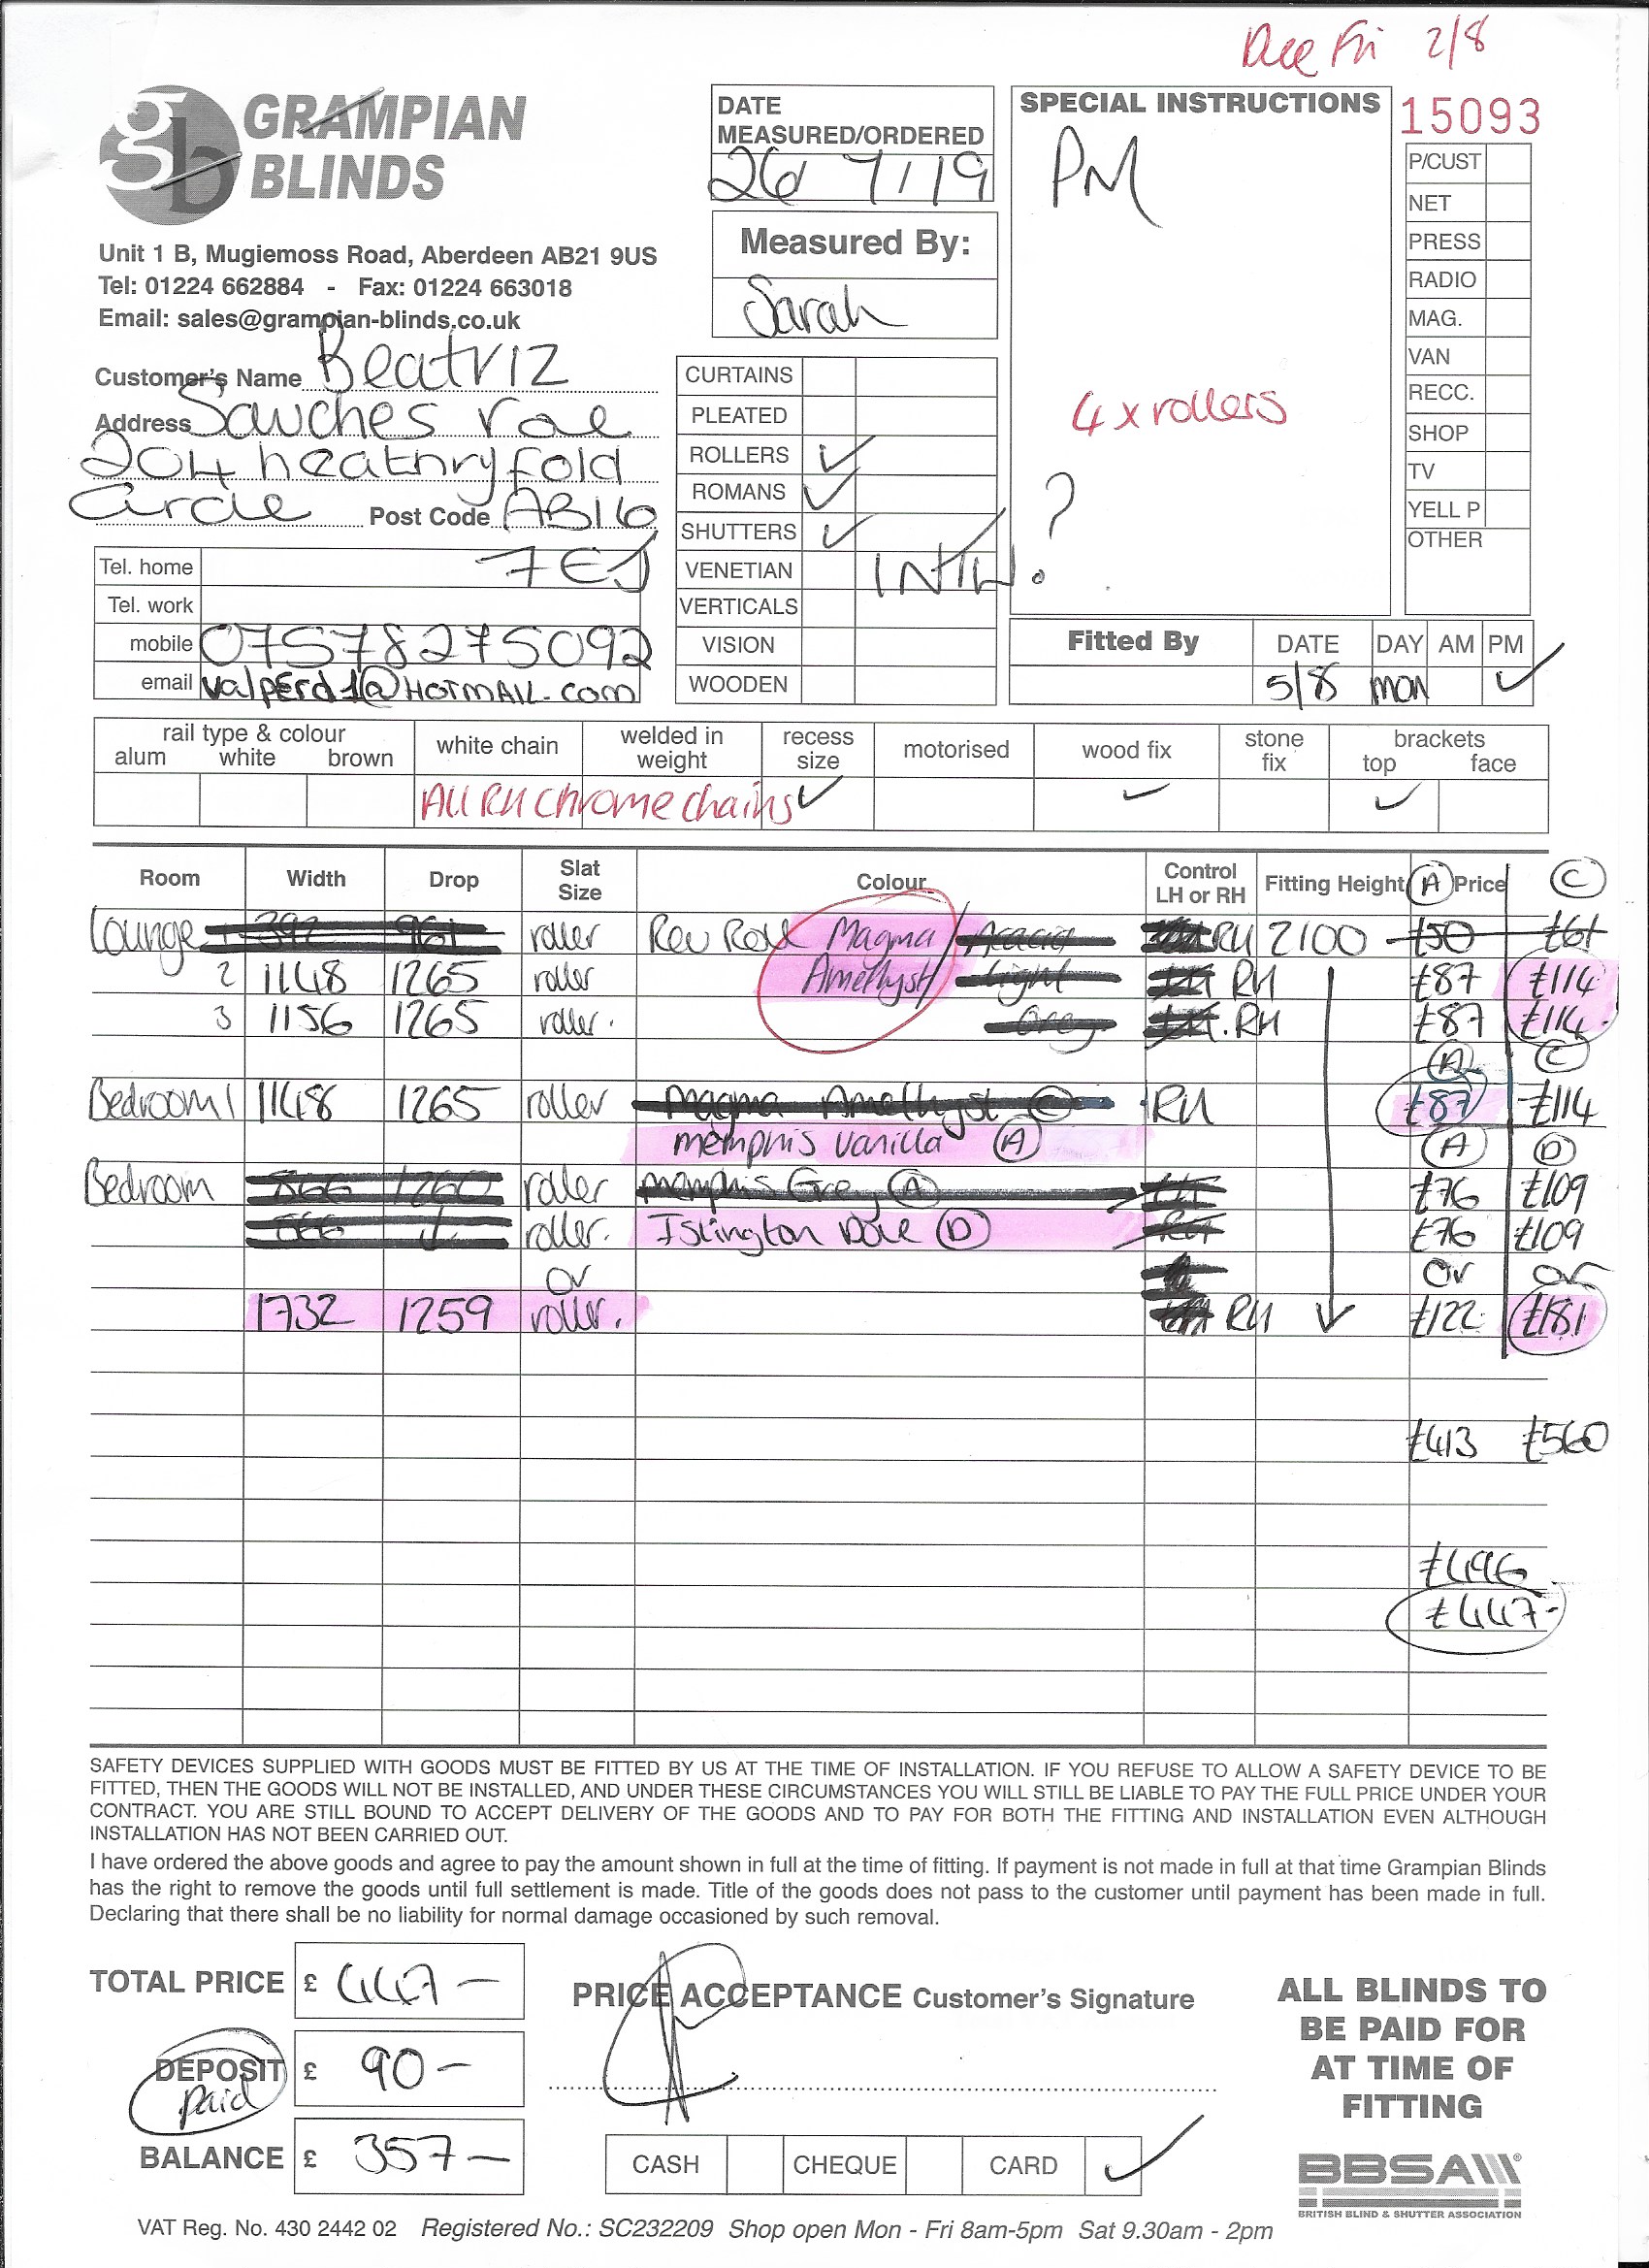 Due Fri 2/8
GRAMPIAN
BLINDS
Unit 1 B, Mugiemoss Road, Aberdeen AB21 9US
Tel: 01224 662884 - Fax: 01224 663018
Email: sales@grampian-blinds.co.uk
DATE
MEASURED/ORDERED
26/7/19
Measured By:
Sarah
SPECIAL INSTRUCTIONS
PM
4 x rollers
?
15093
P/CUST
NET
PRESS
RADIO
MAG.
VAN
RECC.
SHOP
TV
YELL P
OTHER
Customer's Name Beatriz
Address Sanches rae
204 heathryfold
Circle Post Code AB16
7EJ
Tel. home
Tel. work
mobile 07578275092
email valperd1@HOTMAIL.com
CURTAINS
PLEATED
ROLLERS ✓
ROMANS ✓
SHUTTERS ✓
VENETIAN INTU.
VERTICALS
VISION
WOODEN
Fitted By DATE DAY AM PM
5/8 MON ✓
rail type & colour
alum white brown
white chain
welded in weight
recess size
motorised
wood fix
stone fix
brackets
top face
All RH Chrome chains ✓ ✓ ✓
Room Width Drop Slat Size Colour Control LH or RH Fitting Height (A) Price (C)
Lounge 392 961 roller Rev Roll Magma / Acacia RH 2100 £50 £61
2 1148 1265 roller Amethyst / Light RH £87 £114
3 1156 1265 roller. Grey RH £87 £114
(A) (C)
Bedroom 1 1148 1265 roller Magma Amethyst (C) RH £87 £114
memphis vanilla (A) (A) (D)
Bedroom 866 1260 roller memphis Grey (A) £76 £109
866 roller. Islington Dove (D) £76 £109
or or or
1732 1259 roller. RH £122 £181
£413 £560
£496
£447-
SAFETY DEVICES SUPPLIED WITH GOODS MUST BE FITTED BY US AT THE TIME OF INSTALLATION. IF YOU REFUSE TO ALLOW A SAFETY DEVICE TO BE
FITTED, THEN THE GOODS WILL NOT BE INSTALLED, AND UNDER THESE CIRCUMSTANCES YOU WILL STILL BE LIABLE TO PAY THE FULL PRICE UNDER YOUR
CONTRACT. YOU ARE STILL BOUND TO ACCEPT DELIVERY OF THE GOODS AND TO PAY FOR BOTH THE FITTING AND INSTALLATION EVEN ALTHOUGH
INSTALLATION HAS NOT BEEN CARRIED OUT.
I have ordered the above goods and agree to pay the amount shown in full at the time of fitting. If payment is not made in full at that time Grampian Blinds
has the right to remove the goods until full settlement is made. Title of the goods does not pass to the customer until payment has been made in full.
Declaring that there shall be no liability for normal damage occasioned by such removal.
TOTAL PRICE £ 447-
DEPOSIT £ 90-
paid
BALANCE £ 357-
PRICE ACCEPTANCE Customer's Signature
CASH CHEQUE CARD ✓
ALL BLINDS TO
BE PAID FOR
AT TIME OF
FITTING
BBSA
BRITISH BLIND & SHUTTER ASSOCIATION
VAT Reg. No. 430 2442 02 Registered No.: SC232209 Shop open Mon - Fri 8am-5pm Sat 9.30am - 2pm